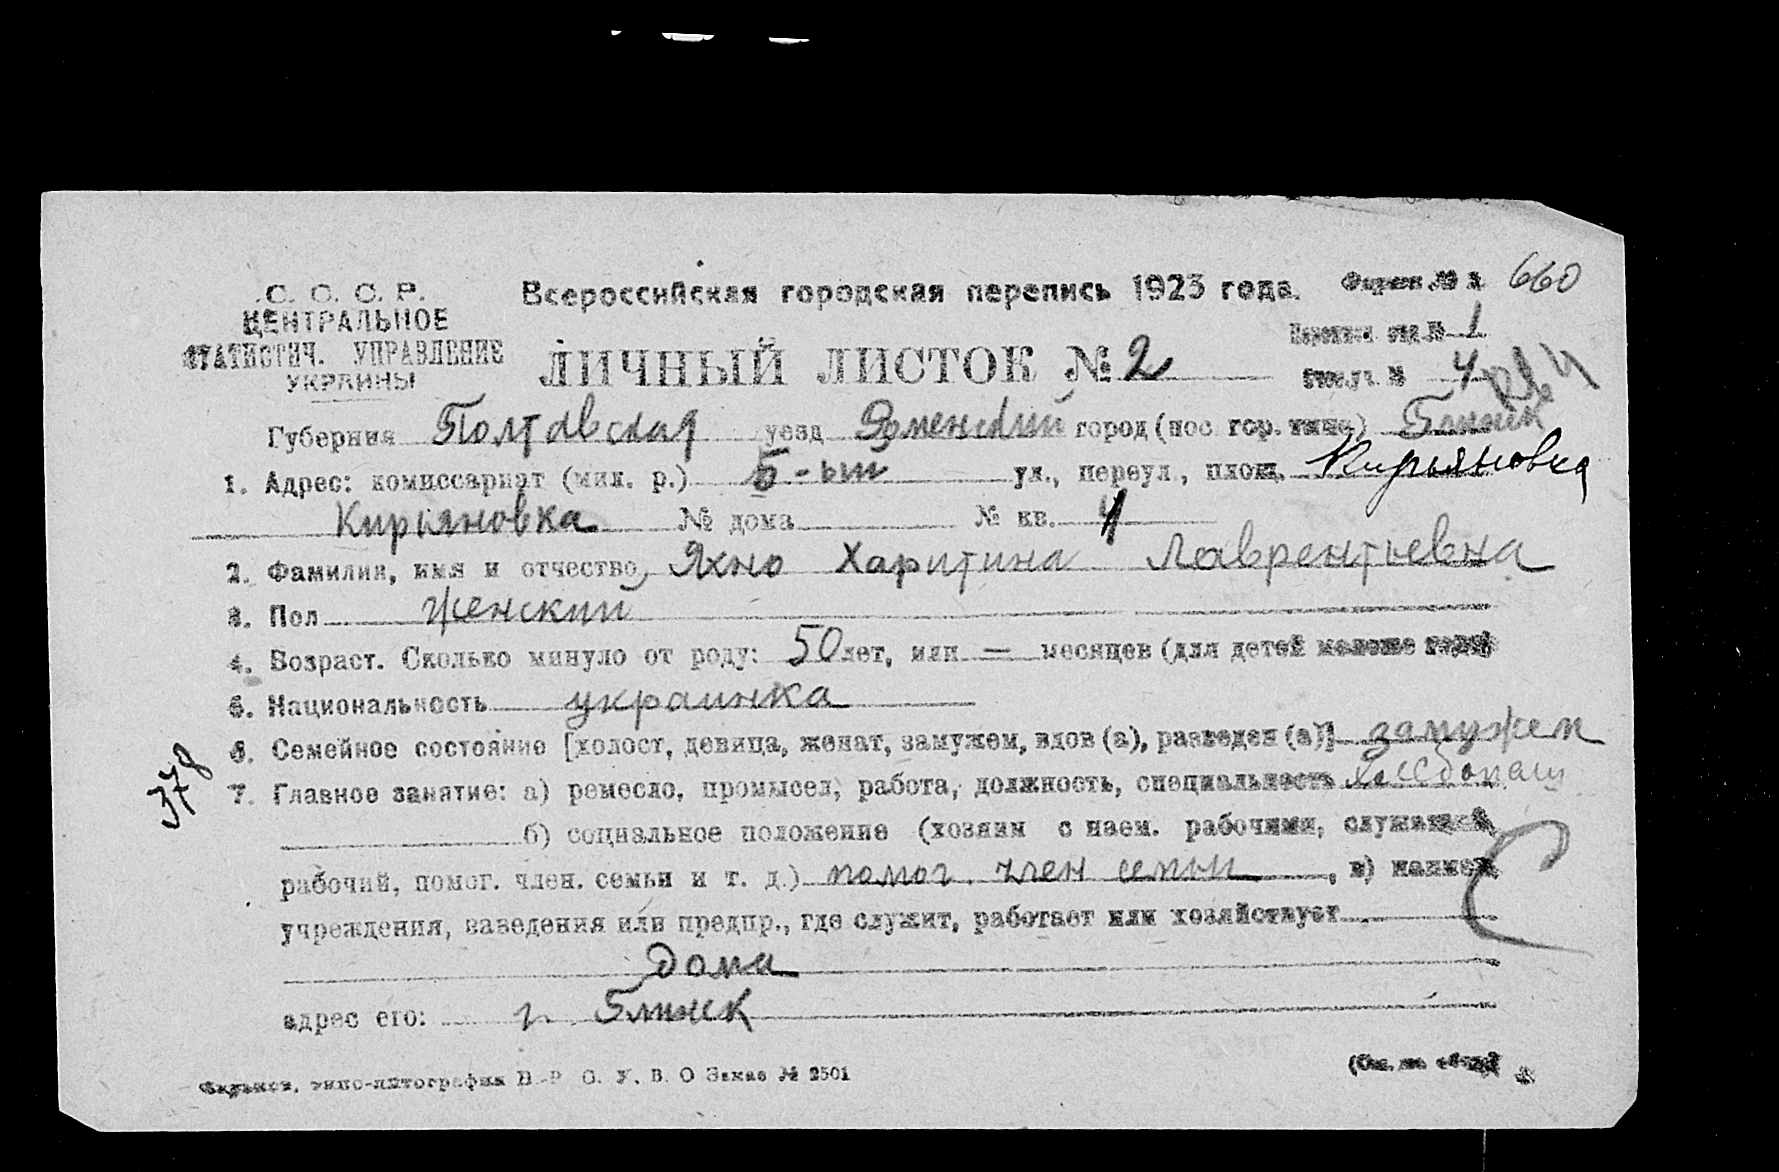 С. С. С. Р.
ЦЕНТРАЛЬНОЕ
СТАТИСТИЧ. УПРАВЛЕНИЕ
УКРАИНЫ
Всероссийская городская перепись 1923 года.
Форма № 660
ЛИЧНЫЙ ЛИСТОК № 2
№ 1
№ 4
Губерния Полтавская уезд Роменский город (пос. гор. типа) Глинск
1. Адрес: комиссариат (мил. р.) 5-ый ул., переул., площ. Кирьяновка
Кирьяновка № дома № кв. 4
2. Фамилия, имя и отчество Яхно Харитина Лаврентьевна
3. Пол женский
4. Возраст. Сколько минуло от роду: 50 лет, или — месяцев (для детей моложе года)
5. Национальность украинка
6. Семейное состояние [холост, девица, женат, замужем, вдов (а), разведен (а)] замужем
378
7. Главное занятие: а) ремесло, промысел, работа, должность, специальность
б) социальное положение (хозяин с наем. рабочими, служащий,
рабочий, помог. член. семьи и т. д.) помог. член семьи, в) наимен.
учреждения, заведения или предпр., где служит, работает или хозяйствует
дома
адрес его: г. Глинск
типо-литография В. Р. С. У. В. О Заказ № 2501
(См. на обор.)